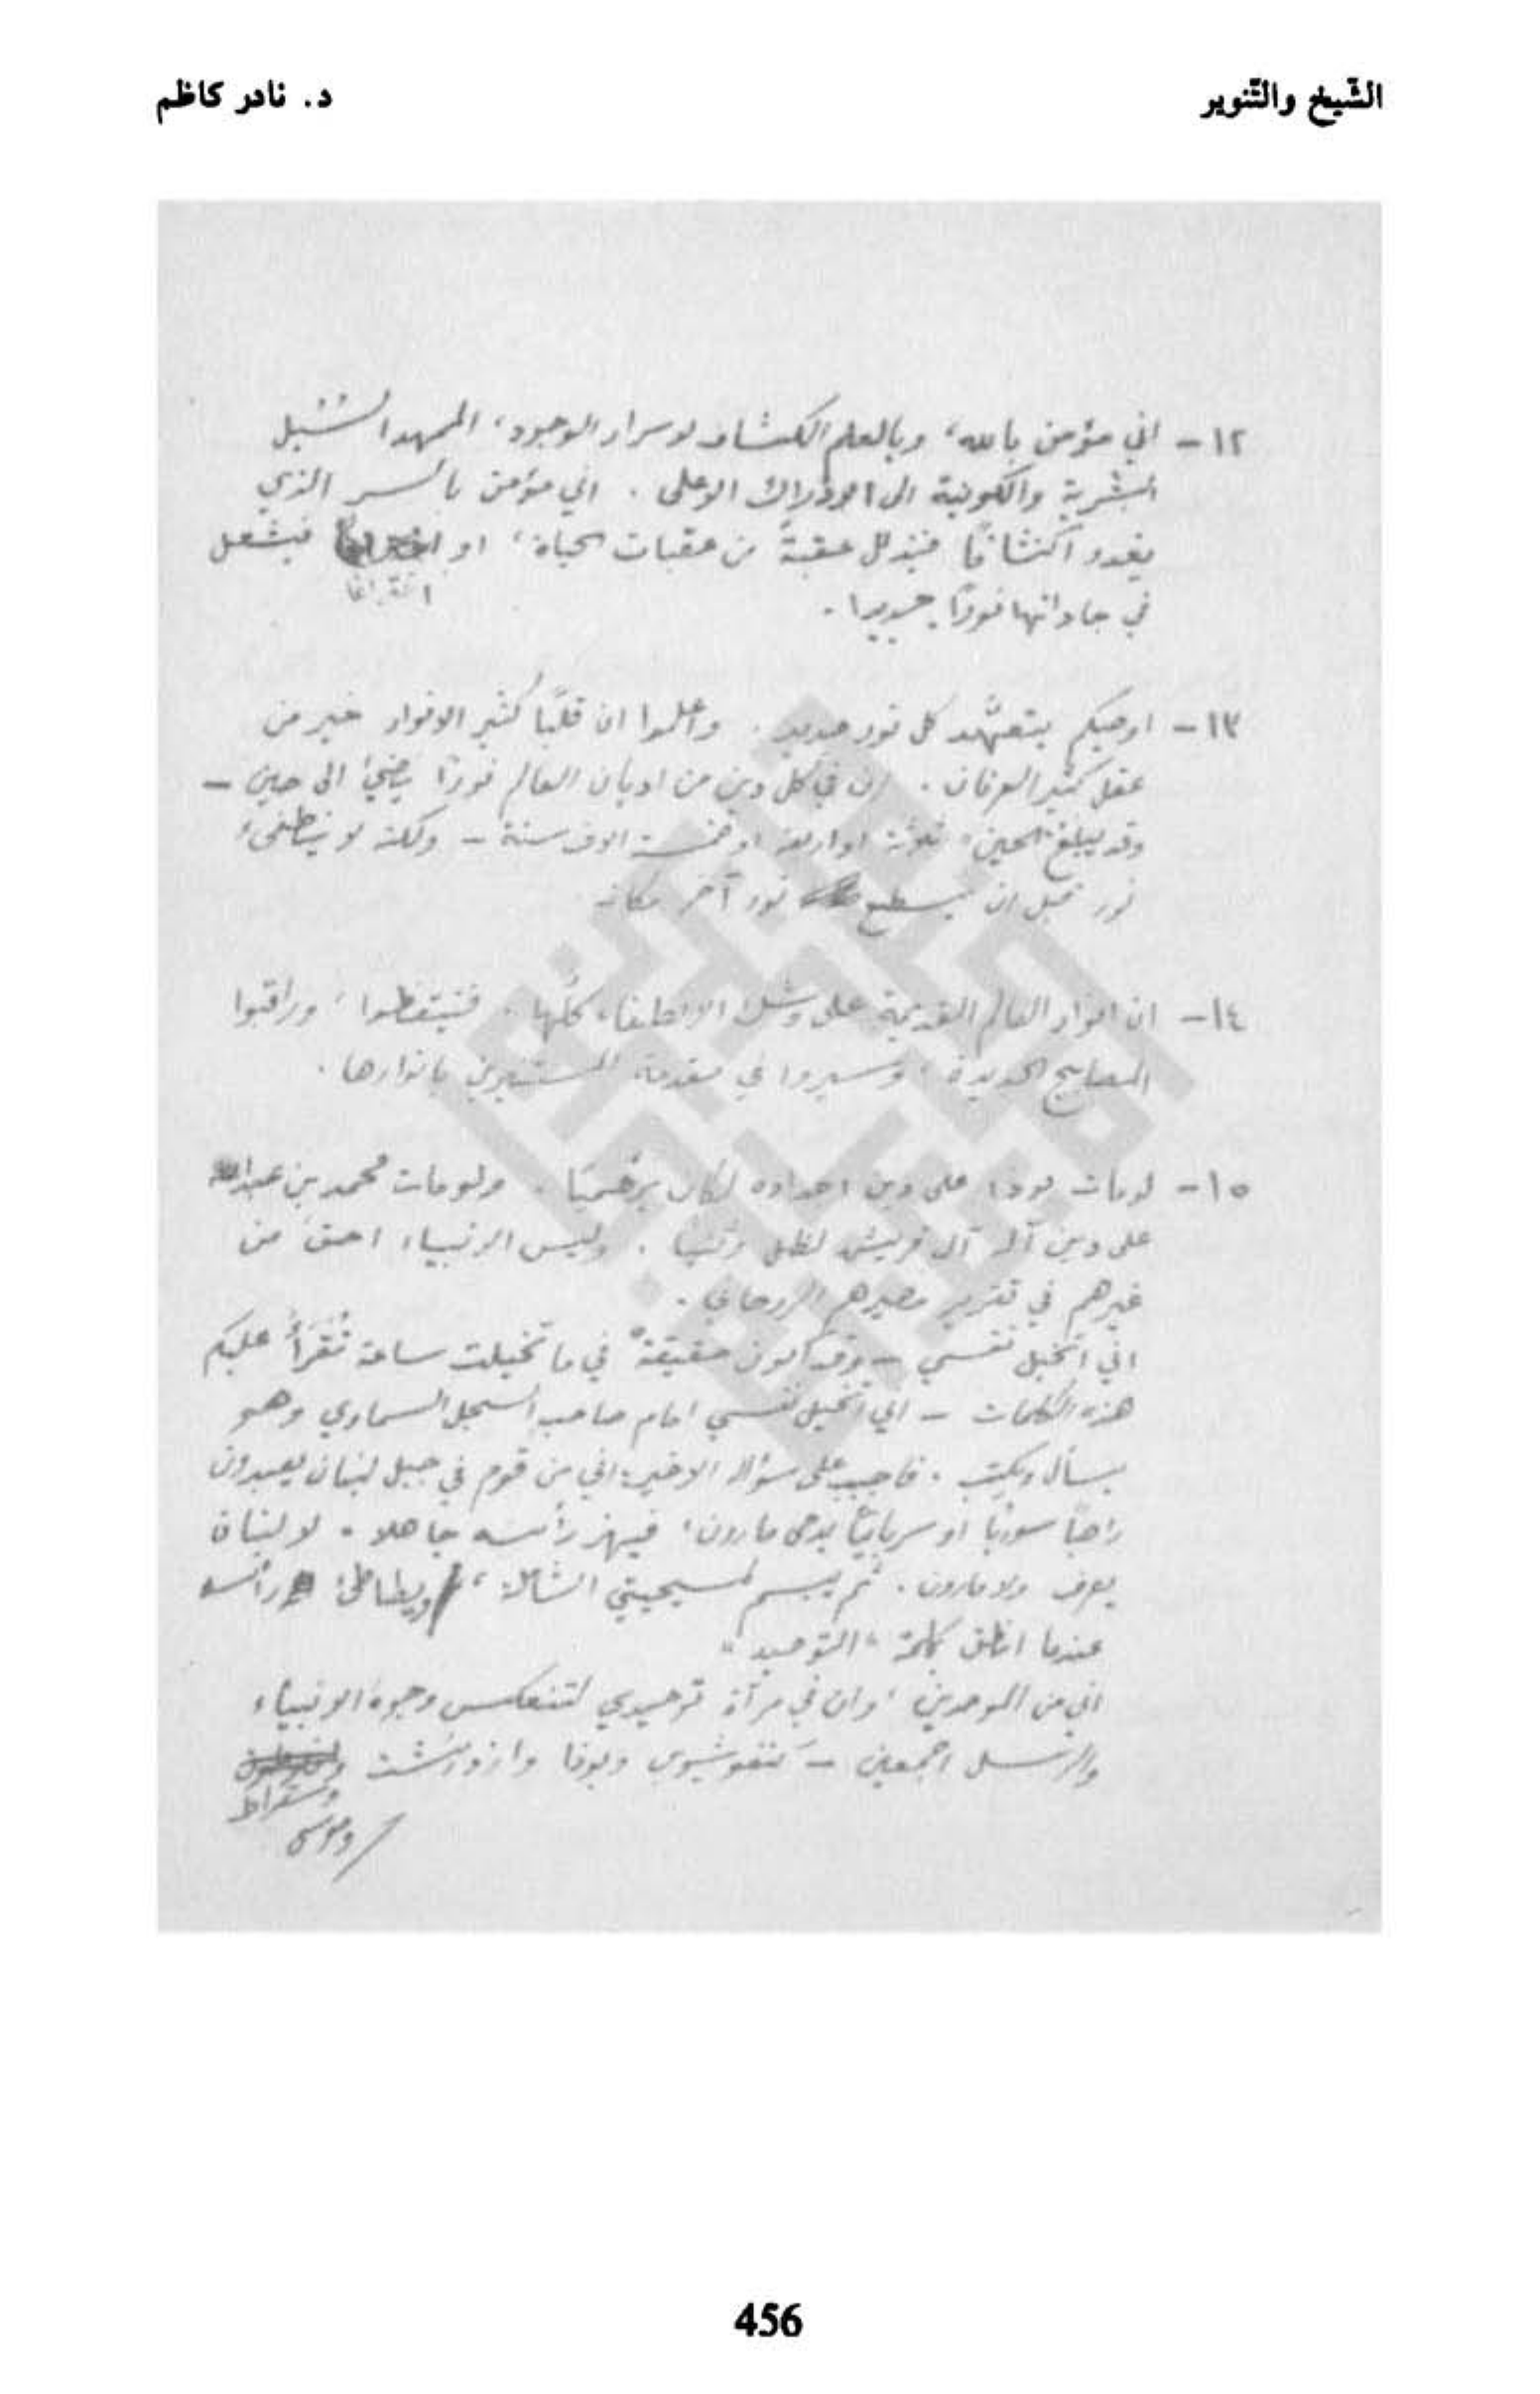 الشّيخ والتّنوير
د. نادر كاظم
١٢ - اني مؤمن بالله، وبالعلم الكشاف لاسرار الوجود، الممهد السُبُل
البشرية والكونية الى الادراك الاعلى . اني مؤمن بالسر الذي
يغدو اكتشافًا فيذلل عقبةً من عقبات الحياة، او فيشعل
اختراعًا
في جاداتها نورًا جديدا .
١٣ - اوصيكم بتعهّد كل نور جديد . واعلموا ان قلبًا كثير الانوار خير من
عقل كثير العرفان . ان في كل دين من اديان العالم نورًا يضيء الى حين -
وقد يبلغ الحين ثلاثة او اربعة او خمسة الاف سنة - ولكنه لا ينطفىء
نور قبل ان يسطع نور آخر مكانه
١٤ - ان انوار العالم القديمة على وشك الانطفاء كلها . فتيقظوا، وراقبوا
المصابيح الجديدة، وسيروا في مقدمة المستنيرين بانوارها .
١٥ - لو مات بوذا على دين اجداده لكان برهميًا . ولو مات محمد بن عبدالله
على دين آله آل قريش لظل وثنيًا . وليس الانبياء احق من
غيرهم في تقرير مصيرهم الروحاني .
اني اتخيل نفسي - وقد اكون حقيقةً في ما تخيلت ساعة تُقرَأُ عليكم
هذه الكلمات - اني اتخيل نفسي امام صاحب السجل السماوي وهو
يسأل ويكتب . فاجيب على سؤاله الاخير: اني من قوم في جبل لبنان يعبدون
راهبًا سوريًا او سريانيًا يدعى مارون، فيهز رأسه جاهلا . لا لبنان
يعرف ولا مارون . ثم يبسم لمسيحيتي الشاملة، ويطاطئ رأسه
عندما انطق بكلمة "التوحيد"
اني من الموحدين، وان في مرآة توحيدي لتنعكس وجوه الانبياء
والرسل اجمعين - كنفوشيوس وبوذا وازوردشت
وسقراط
وموسى
456